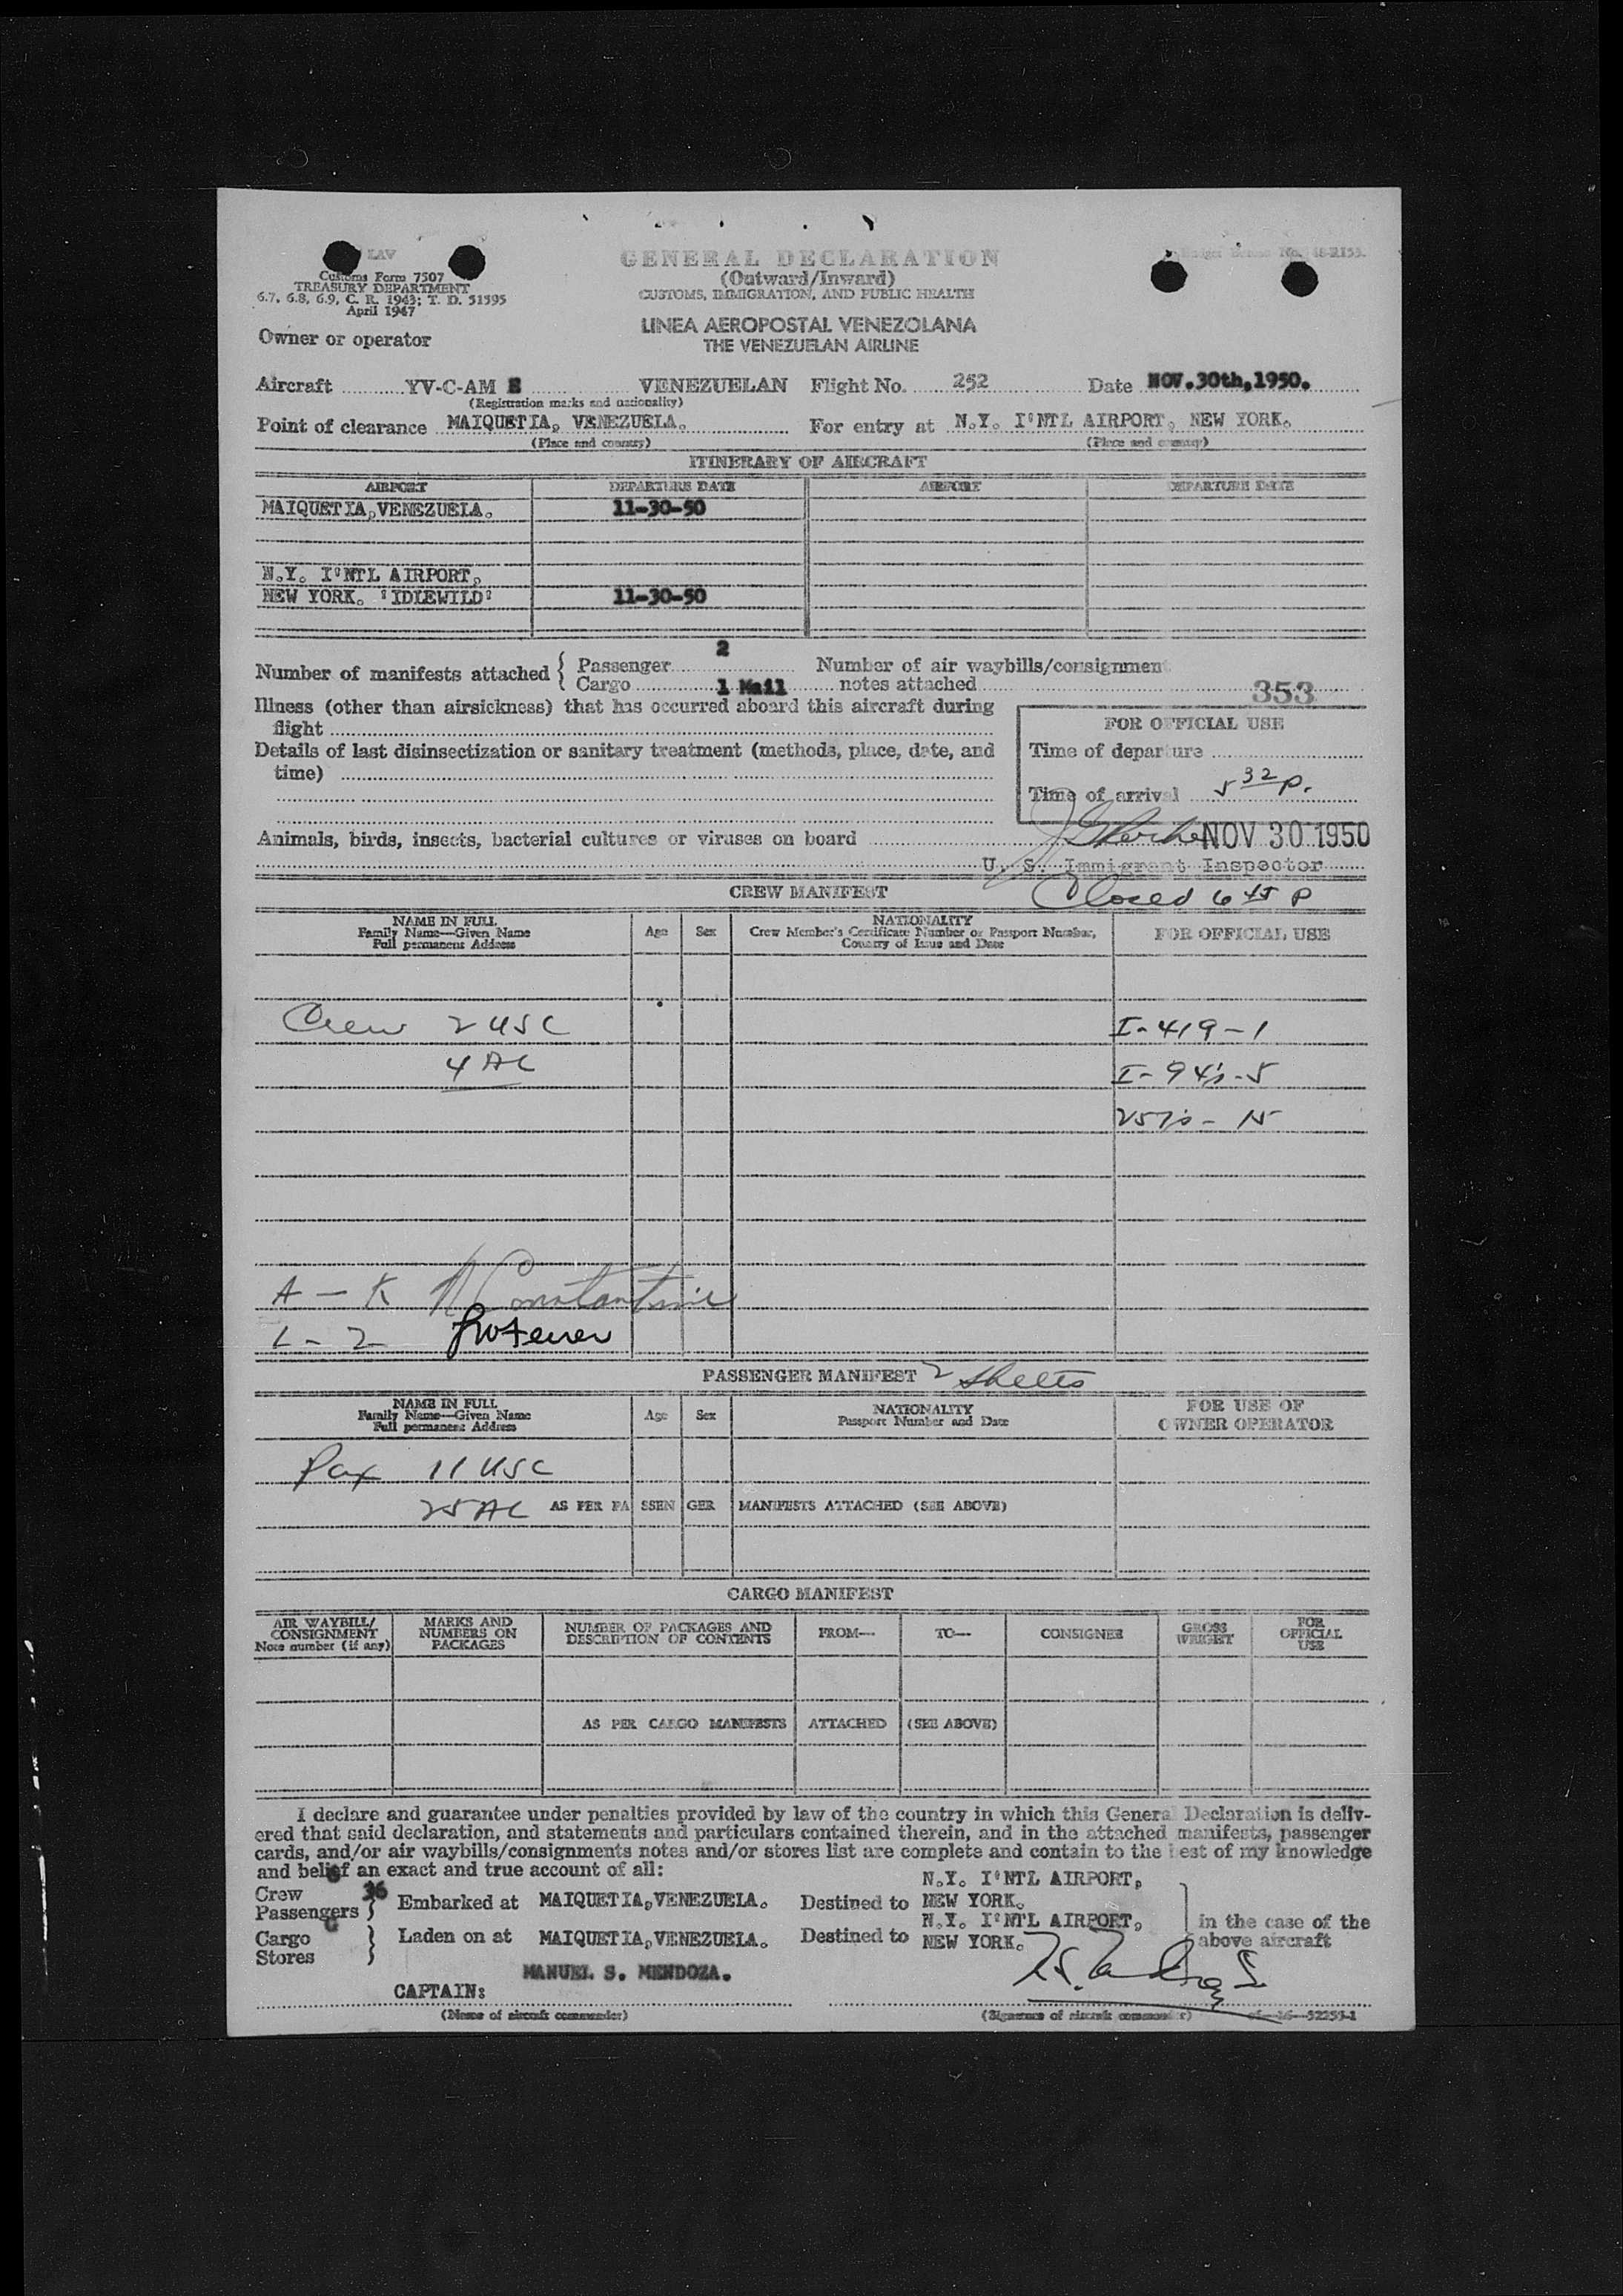 LAV
Customs Form 7507
TREASURY DEPARTMENT
6.7, 6.8, 6.9, C. R. 1943; T. D. 51595
April 1947
GENERAL DECLARATION
(Outward/Inward)
CUSTOMS, IMMIGRATION, AND PUBLIC HEALTH
LINEA AEROPOSTAL VENEZOLANA
THE VENEZUELAN AIRLINE
Owner or operator
Aircraft YV-C-AM E VENEZUELAN Flight No. 252 Date NOV.30th,1950.
(Registration marks and nationality)
Point of clearance MAIQUETIA, VENEZUELA. For entry at N.Y. I'NTL AIRPORT, NEW YORK.
(Place and country) (Place and country)
ITINERARY OF AIRCRAFT
AIRPORT DEPARTURE DATE AIRPORT DEPARTURE DATE
MAIQUETIA,VENEZUELA. 11-30-50
N.Y. I'NTL AIRPORT,
NEW YORK. 'IDLEWILD' 11-30-50
Number of manifests attached { Passenger 2 Number of air waybills/consignment
Cargo 1 Mail notes attached 353
Illness (other than airsickness) that has occurred aboard this aircraft during
flight
FOR OFFICIAL USE
Details of last disinsectization or sanitary treatment (methods, place, date, and
time)
Time of departure
Time of arrival 5 32 p.
Animals, birds, insects, bacterial cultures or viruses on board
NOV 30 1950
U. S. Immigrant Inspector
CREW MANIFEST Closed 6 45 P
NAME IN FULL
Family Name—Given Name
Full permanent Address
Age Sex
NATIONALITY
Crew Member's Certificate Number or Passport Number,
Country of Issue and Date
FOR OFFICIAL USE
Crew 2 USC I-419-1
4 AC I-94's-5
257's - 15
A - K N Constantine
L - Z
PASSENGER MANIFEST 2 Sheets
NAME IN FULL
Family Name—Given Name
Full permanent Address
Age Sex
NATIONALITY
Passport Number and Date
FOR USE OF
OWNER OPERATOR
Pax 11 USC
25 AC AS PER PASSENGER MANIFESTS ATTACHED (SEE ABOVE)
CARGO MANIFEST
AIR WAYBILL/
CONSIGNMENT
Note number (if any)
MARKS AND
NUMBERS ON
PACKAGES
NUMBER OF PACKAGES AND
DESCRIPTION OF CONTENTS
FROM—
TO—
CONSIGNEE
GROSS
WEIGHT
FOR
OFFICIAL
USE
AS PER CARGO MANIFESTS ATTACHED (SEE ABOVE)
I declare and guarantee under penalties provided by law of the country in which this General Declaration is deliv-
ered that said declaration, and statements and particulars contained therein, and in the attached manifests, passenger
cards, and/or air waybills/consignments notes and/or stores list are complete and contain to the best of my knowledge
and belief an exact and true account of all:
Crew 6
Passengers 36 } Embarked at MAIQUETIA,VENEZUELA. Destined to N.Y. I'NTL AIRPORT, NEW YORK.
Cargo
Stores } Laden on at MAIQUETIA,VENEZUELA. Destined to N.Y. I'NTL AIRPORT, NEW YORK.
in the case of the
above aircraft
MANUEL S. MENDOZA.
CAPTAIN:
(Name of aircraft commander) (Signature of aircraft commander) 16—52255-1